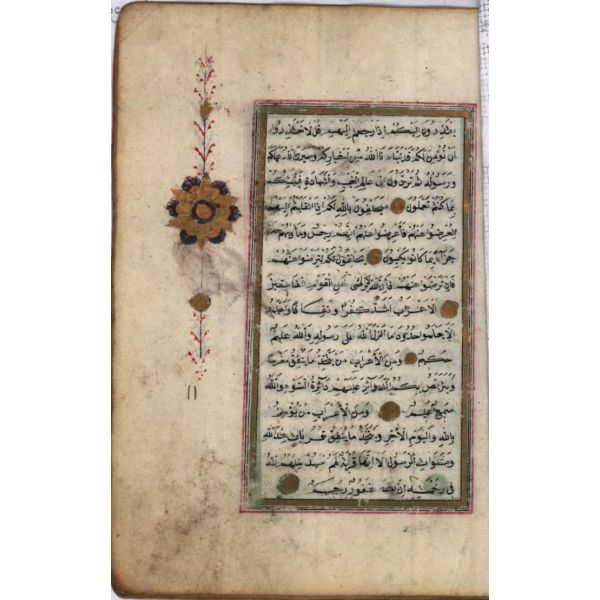 يعتذرون اليكم اذا رجعتم اليهم قل لا تعتذروا
لن نؤمن لكم قد نبأنا الله من اخباركم وسيرى الله عملكم
ورسوله ثم تردون الى عالم الغيب والشهادة فينبئكم
بما كنتم تعملون سيحلفون بالله لكم اذا انقلبتم اليهم
لتعرضوا عنهم فاعرضوا عنهم انهم رجس ومأويهم جهنم
جزاء بما كانوا يكسبون يحلفون لكم لترضوا عنهم
فان ترضوا عنهم فان الله لا يرضى عن القوم الفاسقين
الاعراب اشد كفرا ونفاقا واجدر
الا يعلموا حدود ما انزل الله على رسوله والله عليم
حكيم ومن الاعراب من يتخذ ما ينفق مغرما
ويتربص بكم الدوائر عليهم دائرة السوء والله
سميع عليم ومن الاعراب من يؤمن
بالله واليوم الاخر ويتخذ ما ينفق قربات عند الله
وصلوات الرسول الا انها قربة لهم سيدخلهم الله
في رحمته ان الله غفور رحيم
١١